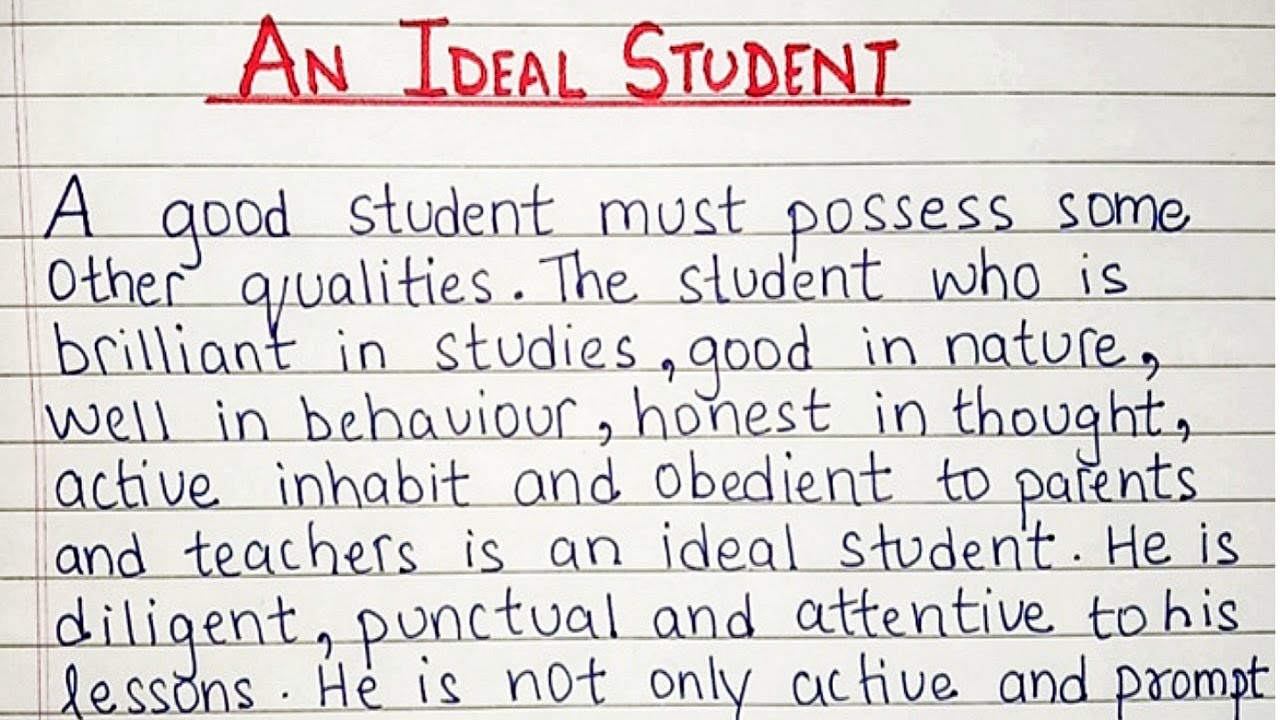 AN IDEAL STUDENT
A good student must possess some
Other qualities. The student who is
brilliant in studies, good in nature,
well in behaviour, honest in thought,
active inhabit and obedient to parents
and teachers is an ideal student. He is
diligent, punctual and attentive to his
lessons. He is not only active and prompt